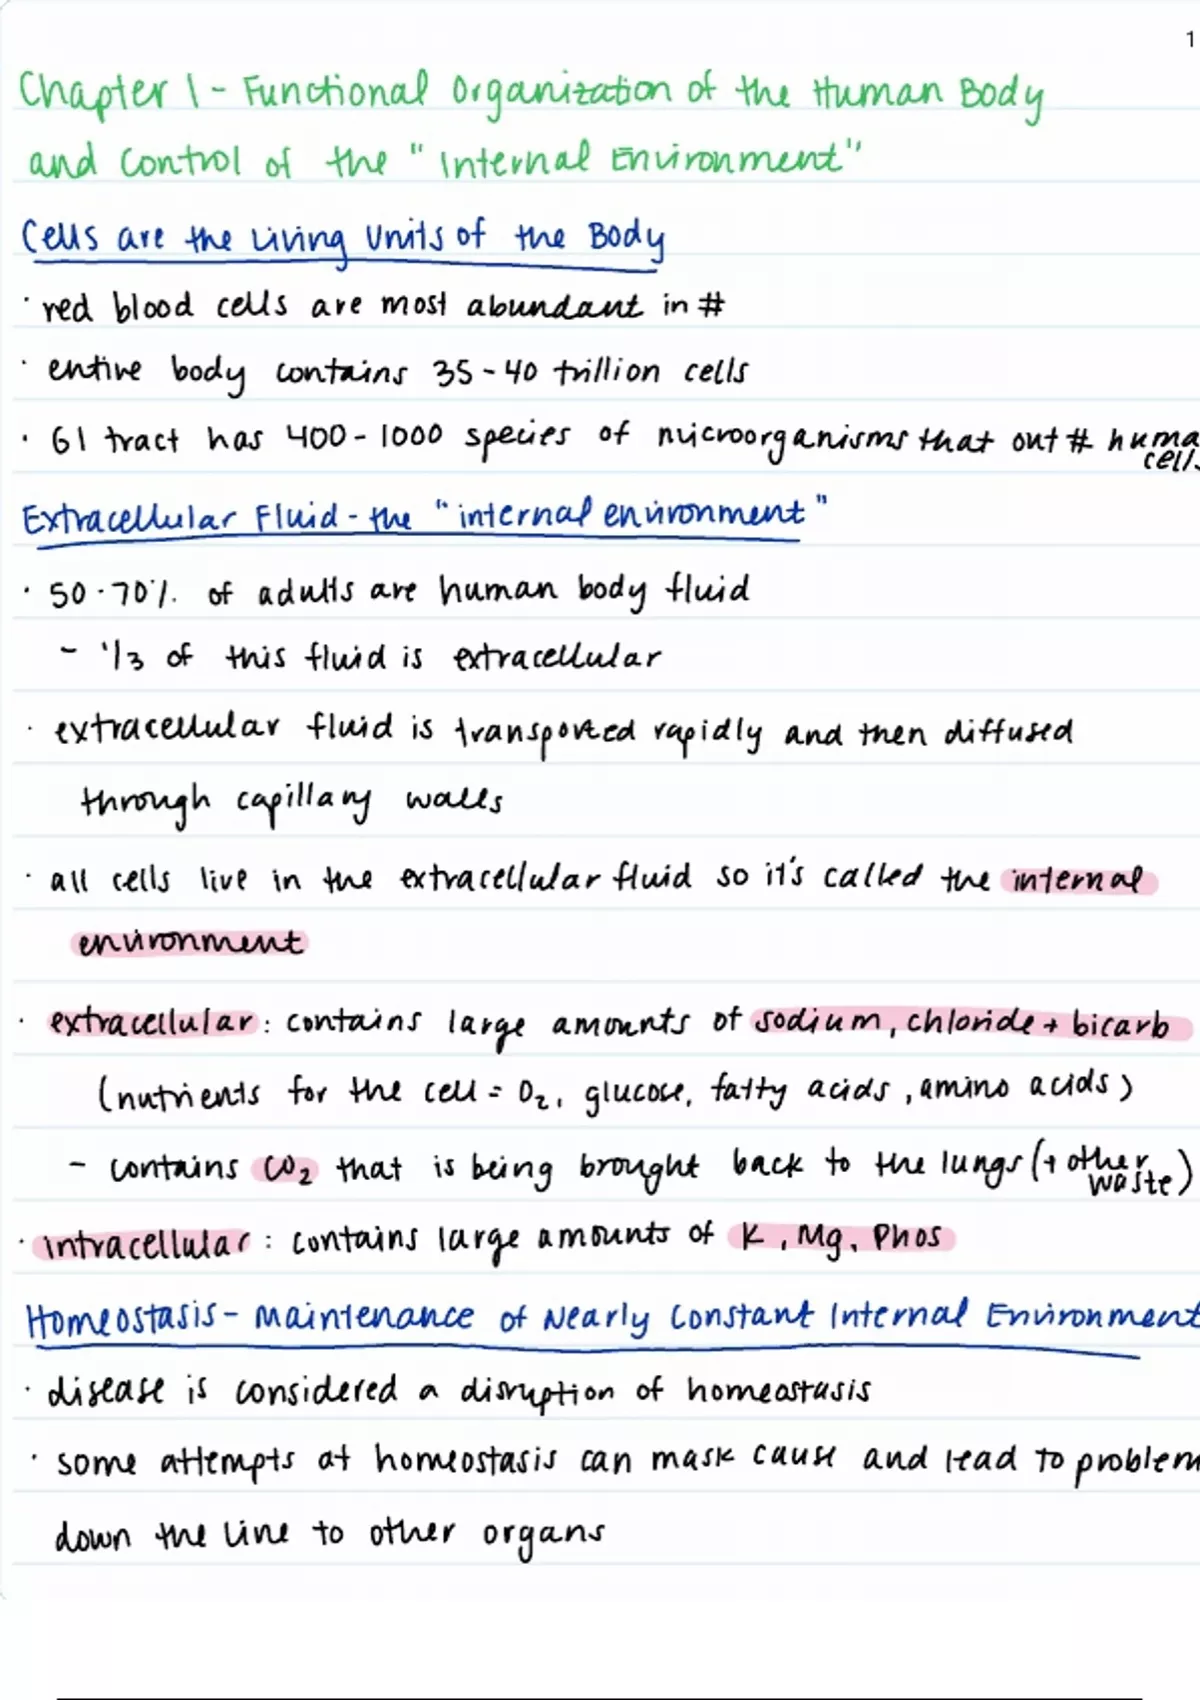 1
Chapter 1 - Functional Organization of the Human Body
and Control of the "Internal Environment"
Cells are the Living Units of the Body
· red blood cells are most abundant in #
· entire body contains 35-40 trillion cells
· GI tract has 400-1000 species of microorganisms that out # huma
cells
Extracellular Fluid - the "internal environment"
· 50-70% of adults are human body fluid
- 1/3 of this fluid is extracellular
· extracellular fluid is transported rapidly and then diffused
through capillary walls
· all cells live in the extracellular fluid so it's called the internal
environment
· extracellular: contains large amounts of sodium, chloride + bicarb
(nutrients for the cell = O₂, glucose, fatty acids, amino acids)
- contains CO₂ that is being brought back to the lungs (+ other
waste)
· intracellular: contains large amounts of K, Mg, Phos
Homeostasis - Maintenance of Nearly Constant Internal Environment
· disease is considered a disruption of homeostasis
· some attempts at homeostasis can mask cause and lead to problem
down the line to other organs